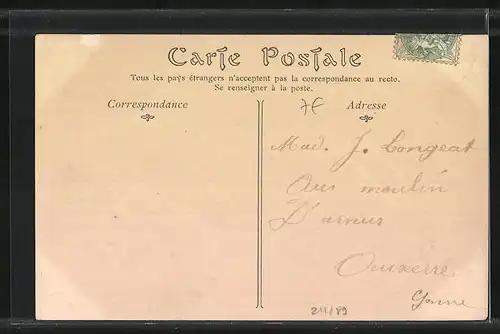 Carte Postale
Tous les pays étrangers n'acceptent pas la correspondance au recto.
Se renseigner à la poste.
Correspondance
Adresse
7E
Mad. J. Longeat
Au moulin
D'arnus
Ouxerre
Yonne
211/89